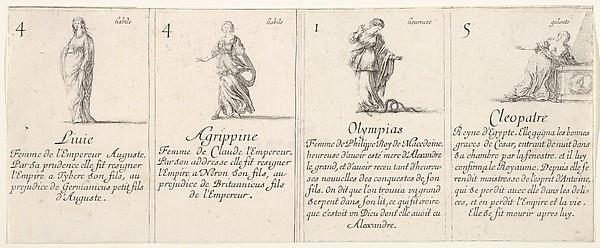 4 habile
Liuie
Femme de l'Empereur Auguste.
Par sa prudence elle fit resigner
l'Empire a Tybere son fils, au
prejudice de Germanicus petit fils
d'Auguste.
4 habile
Agrippine
Femme de Claude l'Empereur.
Par son addresse elle fit resigner
l'Empire a Neron son fils, au
prejudice de Britannicus fils
de l'Empereur.
1 heureuse
Olympias
Femme de Philippe Roy de Macedoine,
heureuse d'auoir esté mere d'Alexandre
le grand, et d'auoir receu tant d'heureu-
ses nouuelles des conquestes de son
fils. On dit que l'on trouua vn grand
serpent dans son lit, ce qui fit croire
que c'estoit vn Dieu dont elle auoit eu
Alexandre.
5 galante
Cleopatre
Reyne d'Egypte. Elle gaigna les bonnes
graces de Cesar, entrant de nuit dans
sa chambre par la fenestre. et il luy
confirma le Royaume. Depuis elle se
rendit maistresse de l'esprit d'Antoine,
qui se perdit auec elle dans les deli-
ces, et en perdit l'Empire et la vie.
Elle se fit mourir apres luy.